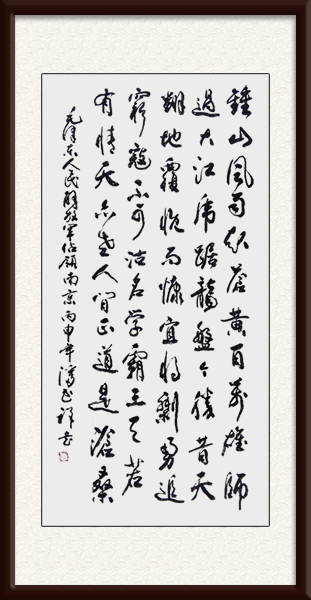 鍾山風雨起蒼黄百萬雄師
過大江虎踞龍盤今勝昔天
翻地覆慨而慷宜将剩勇追
窮寇不可沽名学霸王天若
有情天亦老人间正道是滄桑
毛澤东人民解放軍佔領南京丙申年書